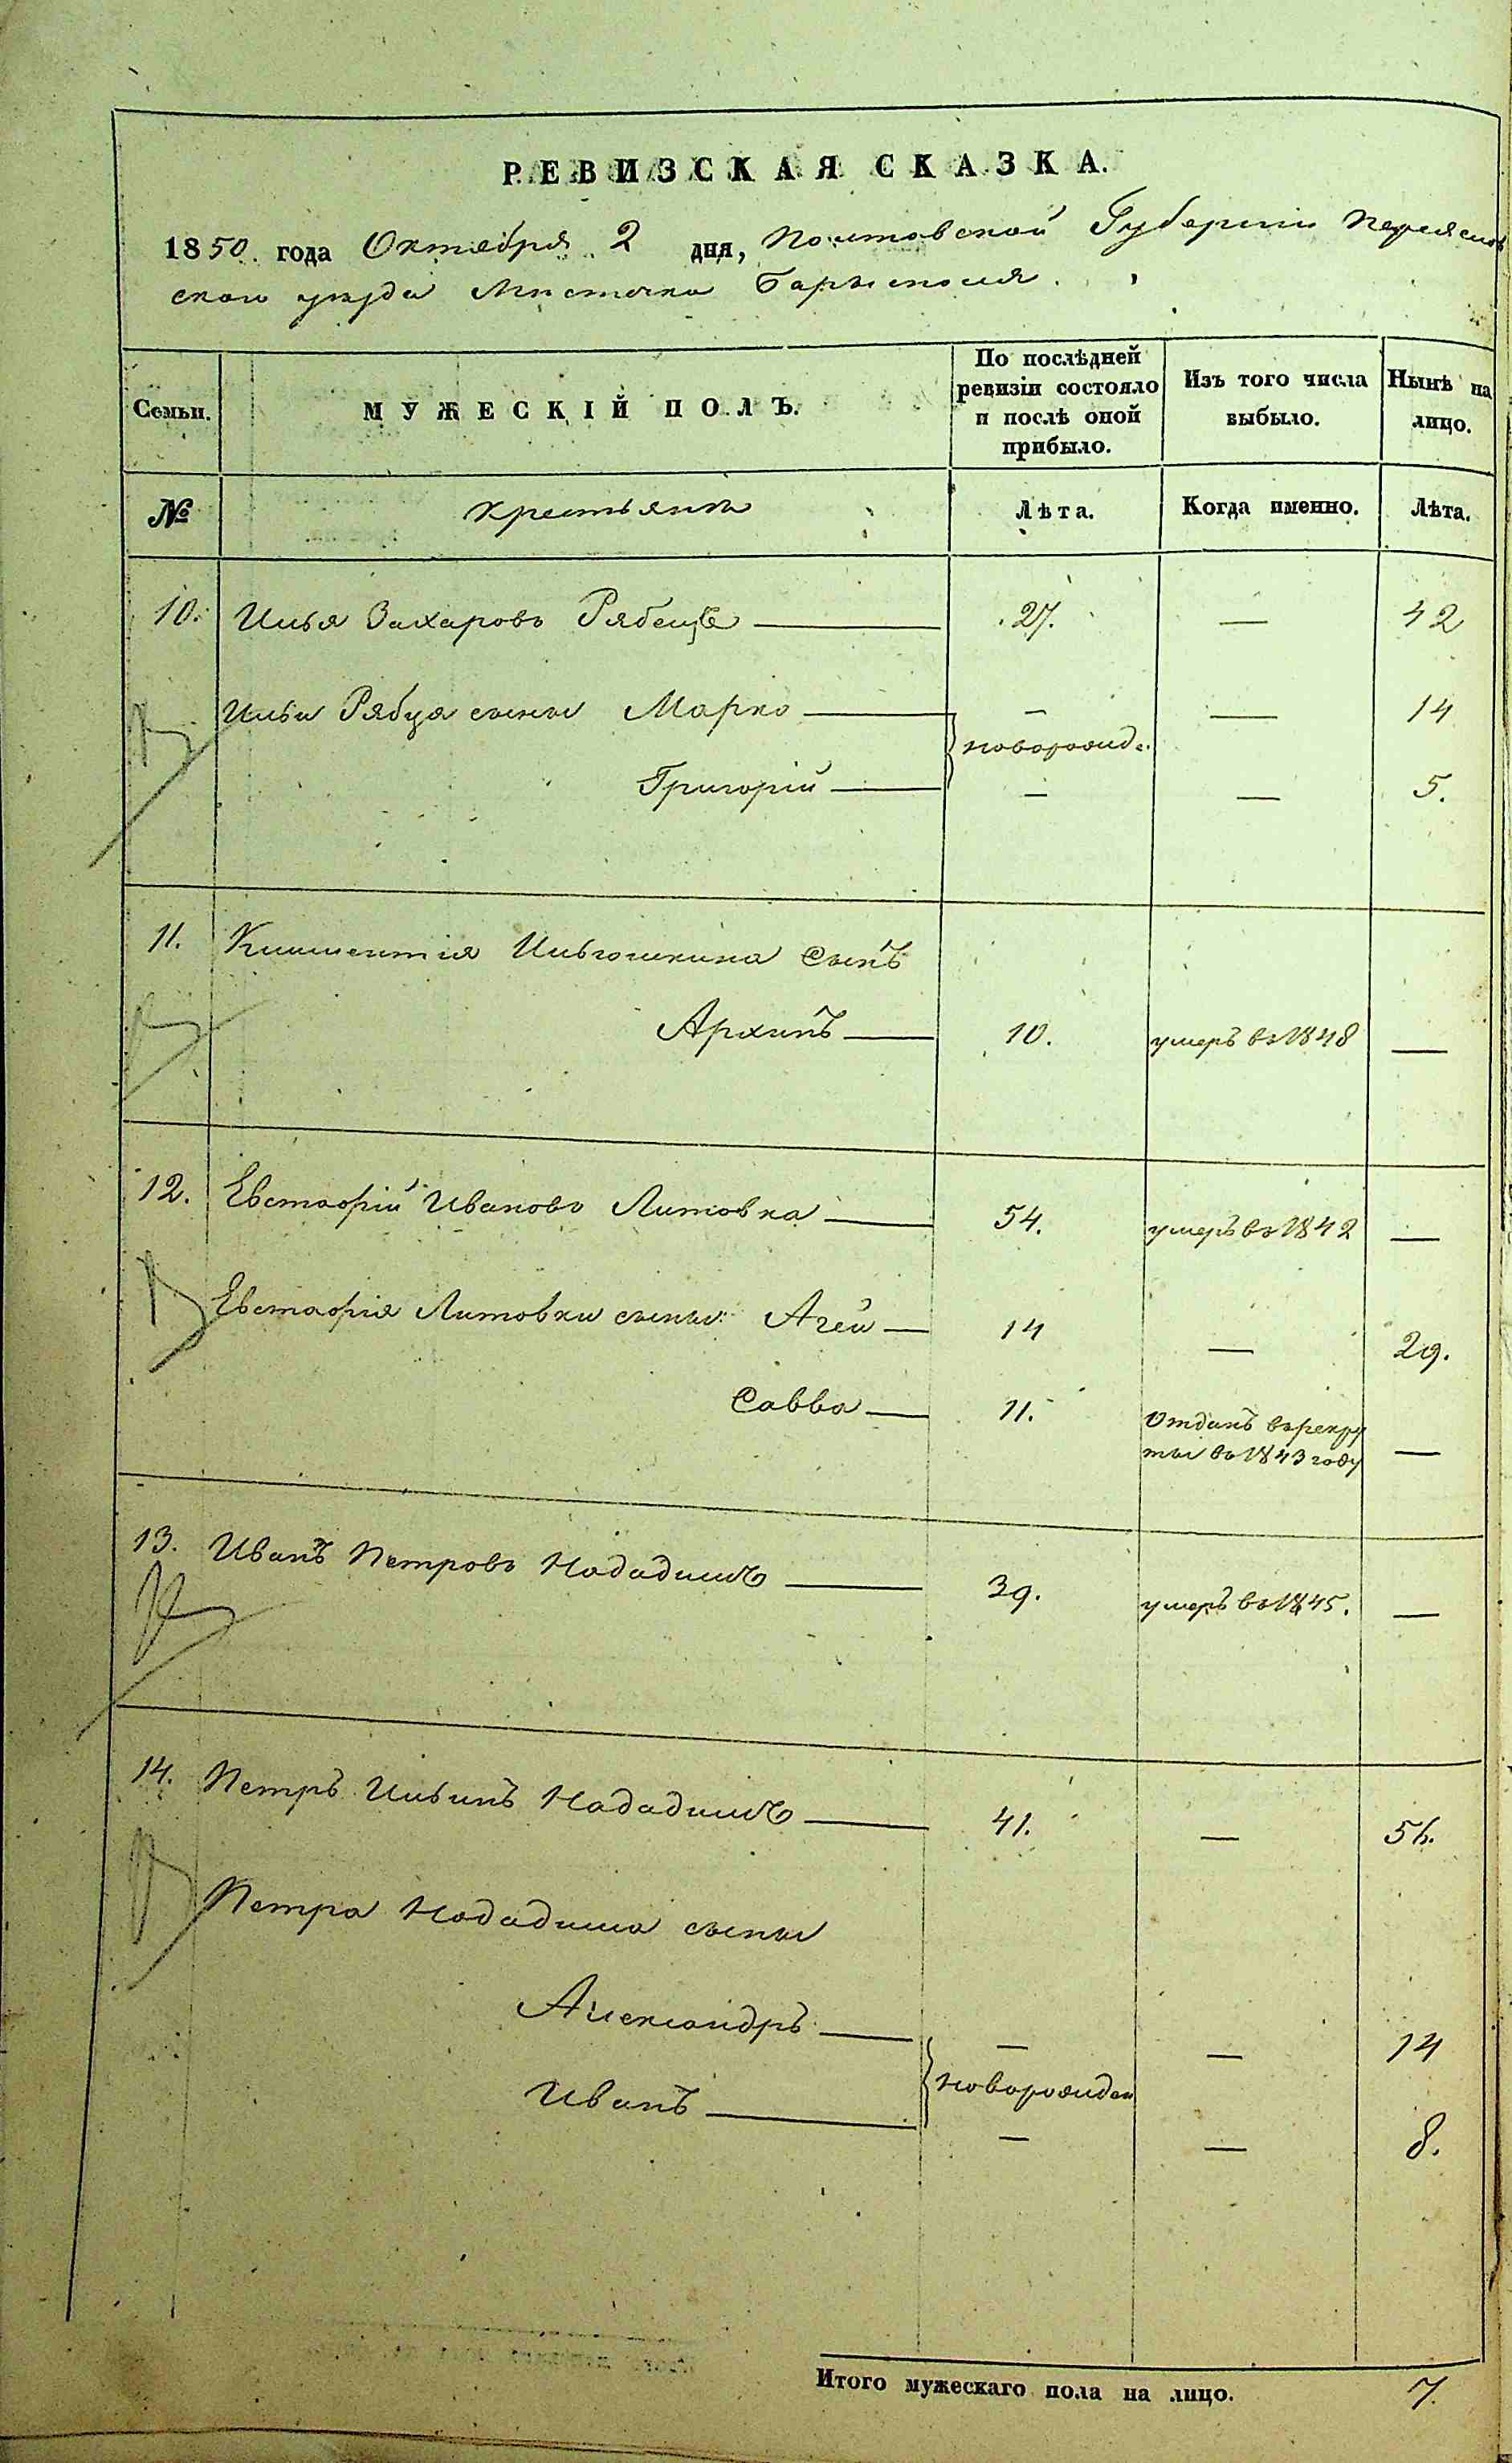 РЕВИЗСКАЯ СКАЗКА.
1850. года Октября 2 дня, Полтавской Губерніи Переяслов
скаго уезда Мистечка Барысполя.
Семьи. МУЖЕСКІЙ ПОЛЪ. По послѣдней ревизіи состояло и послѣ оной прибыло. Изъ того числа выбыло. Нынѣ на лицо.
№ Крестьянъ Лѣта. Когда именно. Лѣта.
10. Илья Захаровъ Рябецъ — 27. — 42
Ильи Рябца сыны Марко — — — 14
новорожд.
Григорій — — — 5.
11. Климентія Ильюшкина Сынъ
Архипъ — 10. умеръ въ 1848 —
12. Евстафій Ивановъ Литовка — 54. умеръ въ 1842 —
Евстафія Литовки сыны: Агей — 14 — 29.
Савва — 11. Отданъ въ рекру
ты въ 1843 году —
13. Иванъ Петровъ — 39. умеръ въ 1845. —
14. Петръ Ильинъ — 41. — 56.
Петра сыны
Александръ — — — 14
новорожден
Иванъ — — — 8.
Итого мужескаго пола на лицо. 7.